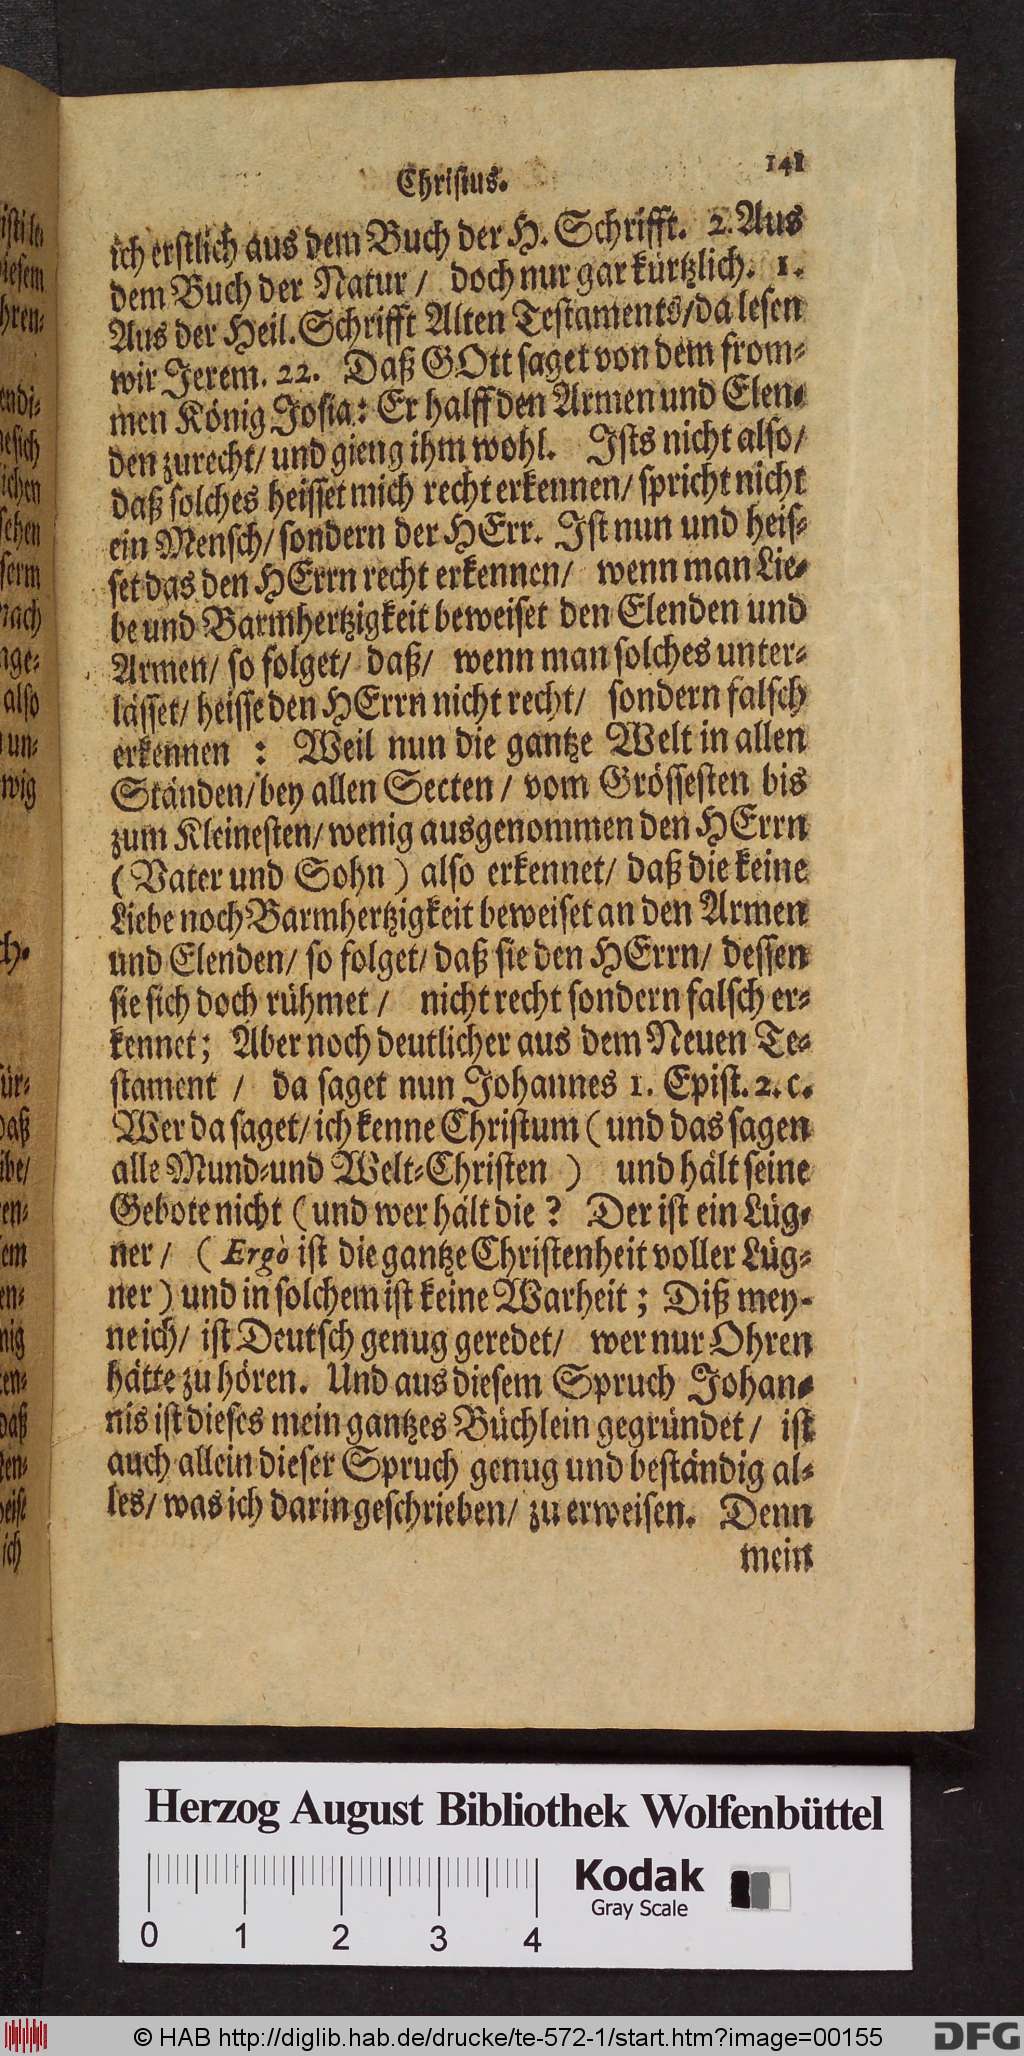 Christus.
141
ich erstlich aus dem Buch der H. Schrifft. 2. Aus
dem Buch der Natur / doch nur gar kürtzlich. 1.
Aus der Heil. Schrifft Alten Testaments/da lesen
wir Jerem. 22. Daß GOtt saget von dem from-
men König Josia: Er halff den Armen und Elen-
den zurecht/ und gieng ihm wohl. Ists nicht also/
daß solches heisset mich recht erkennen/ spricht nicht
ein Mensch/ sondern der HErr. Ist nun und heis-
set das den HErrn recht erkennen/ wenn man Lie-
be und Barmhertzigkeit beweiset den Elenden und
Armen/ so folget/ daß/ wenn man solches unter-
lässet/ heisse den HErrn nicht recht/ sondern falsch
erkennen : Weil nun die gantze Welt in allen
Ständen/ bey allen Secten / vom Grössesten bis
zum Kleinesten/ wenig ausgenommen den HErrn
( Vater und Sohn ) also erkennet/ daß die keine
Liebe noch Barmhertzigkeit beweiset an den Armen
und Elenden/ so folget/ daß sie den HErrn/ dessen
sie sich doch rühmet / nicht recht sondern falsch er-
kennet; Aber noch deutlicher aus dem Neuen Te-
stament / da saget nun Johannes 1. Epist. 2. c.
Wer da saget/ ich kenne Christum ( und das sagen
alle Mund-und Welt-Christen ) und hält seine
Gebote nicht ( und wer hält die ? Der ist ein Lüg-
ner / ( Ergò ist die gantze Christenheit voller Lüg-
ner ) und in solchem ist keine Warheit ; Diß mey-
ne ich/ ist Deutsch genug geredet/ wer nur Ohren
hätte zu hören. Und aus diesem Spruch Johan-
nis ist dieses mein gantzes Büchlein gegründet / ist
auch allein dieser Spruch genug und beständig al-
les/ was ich darin geschrieben/ zu erweisen. Denn
mein
Herzog August Bibliothek Wolfenbüttel
Kodak
Gray Scale
0 1 2 3 4
© HAB http://diglib.hab.de/drucke/te-572-1/start.htm?image=00155
DFG